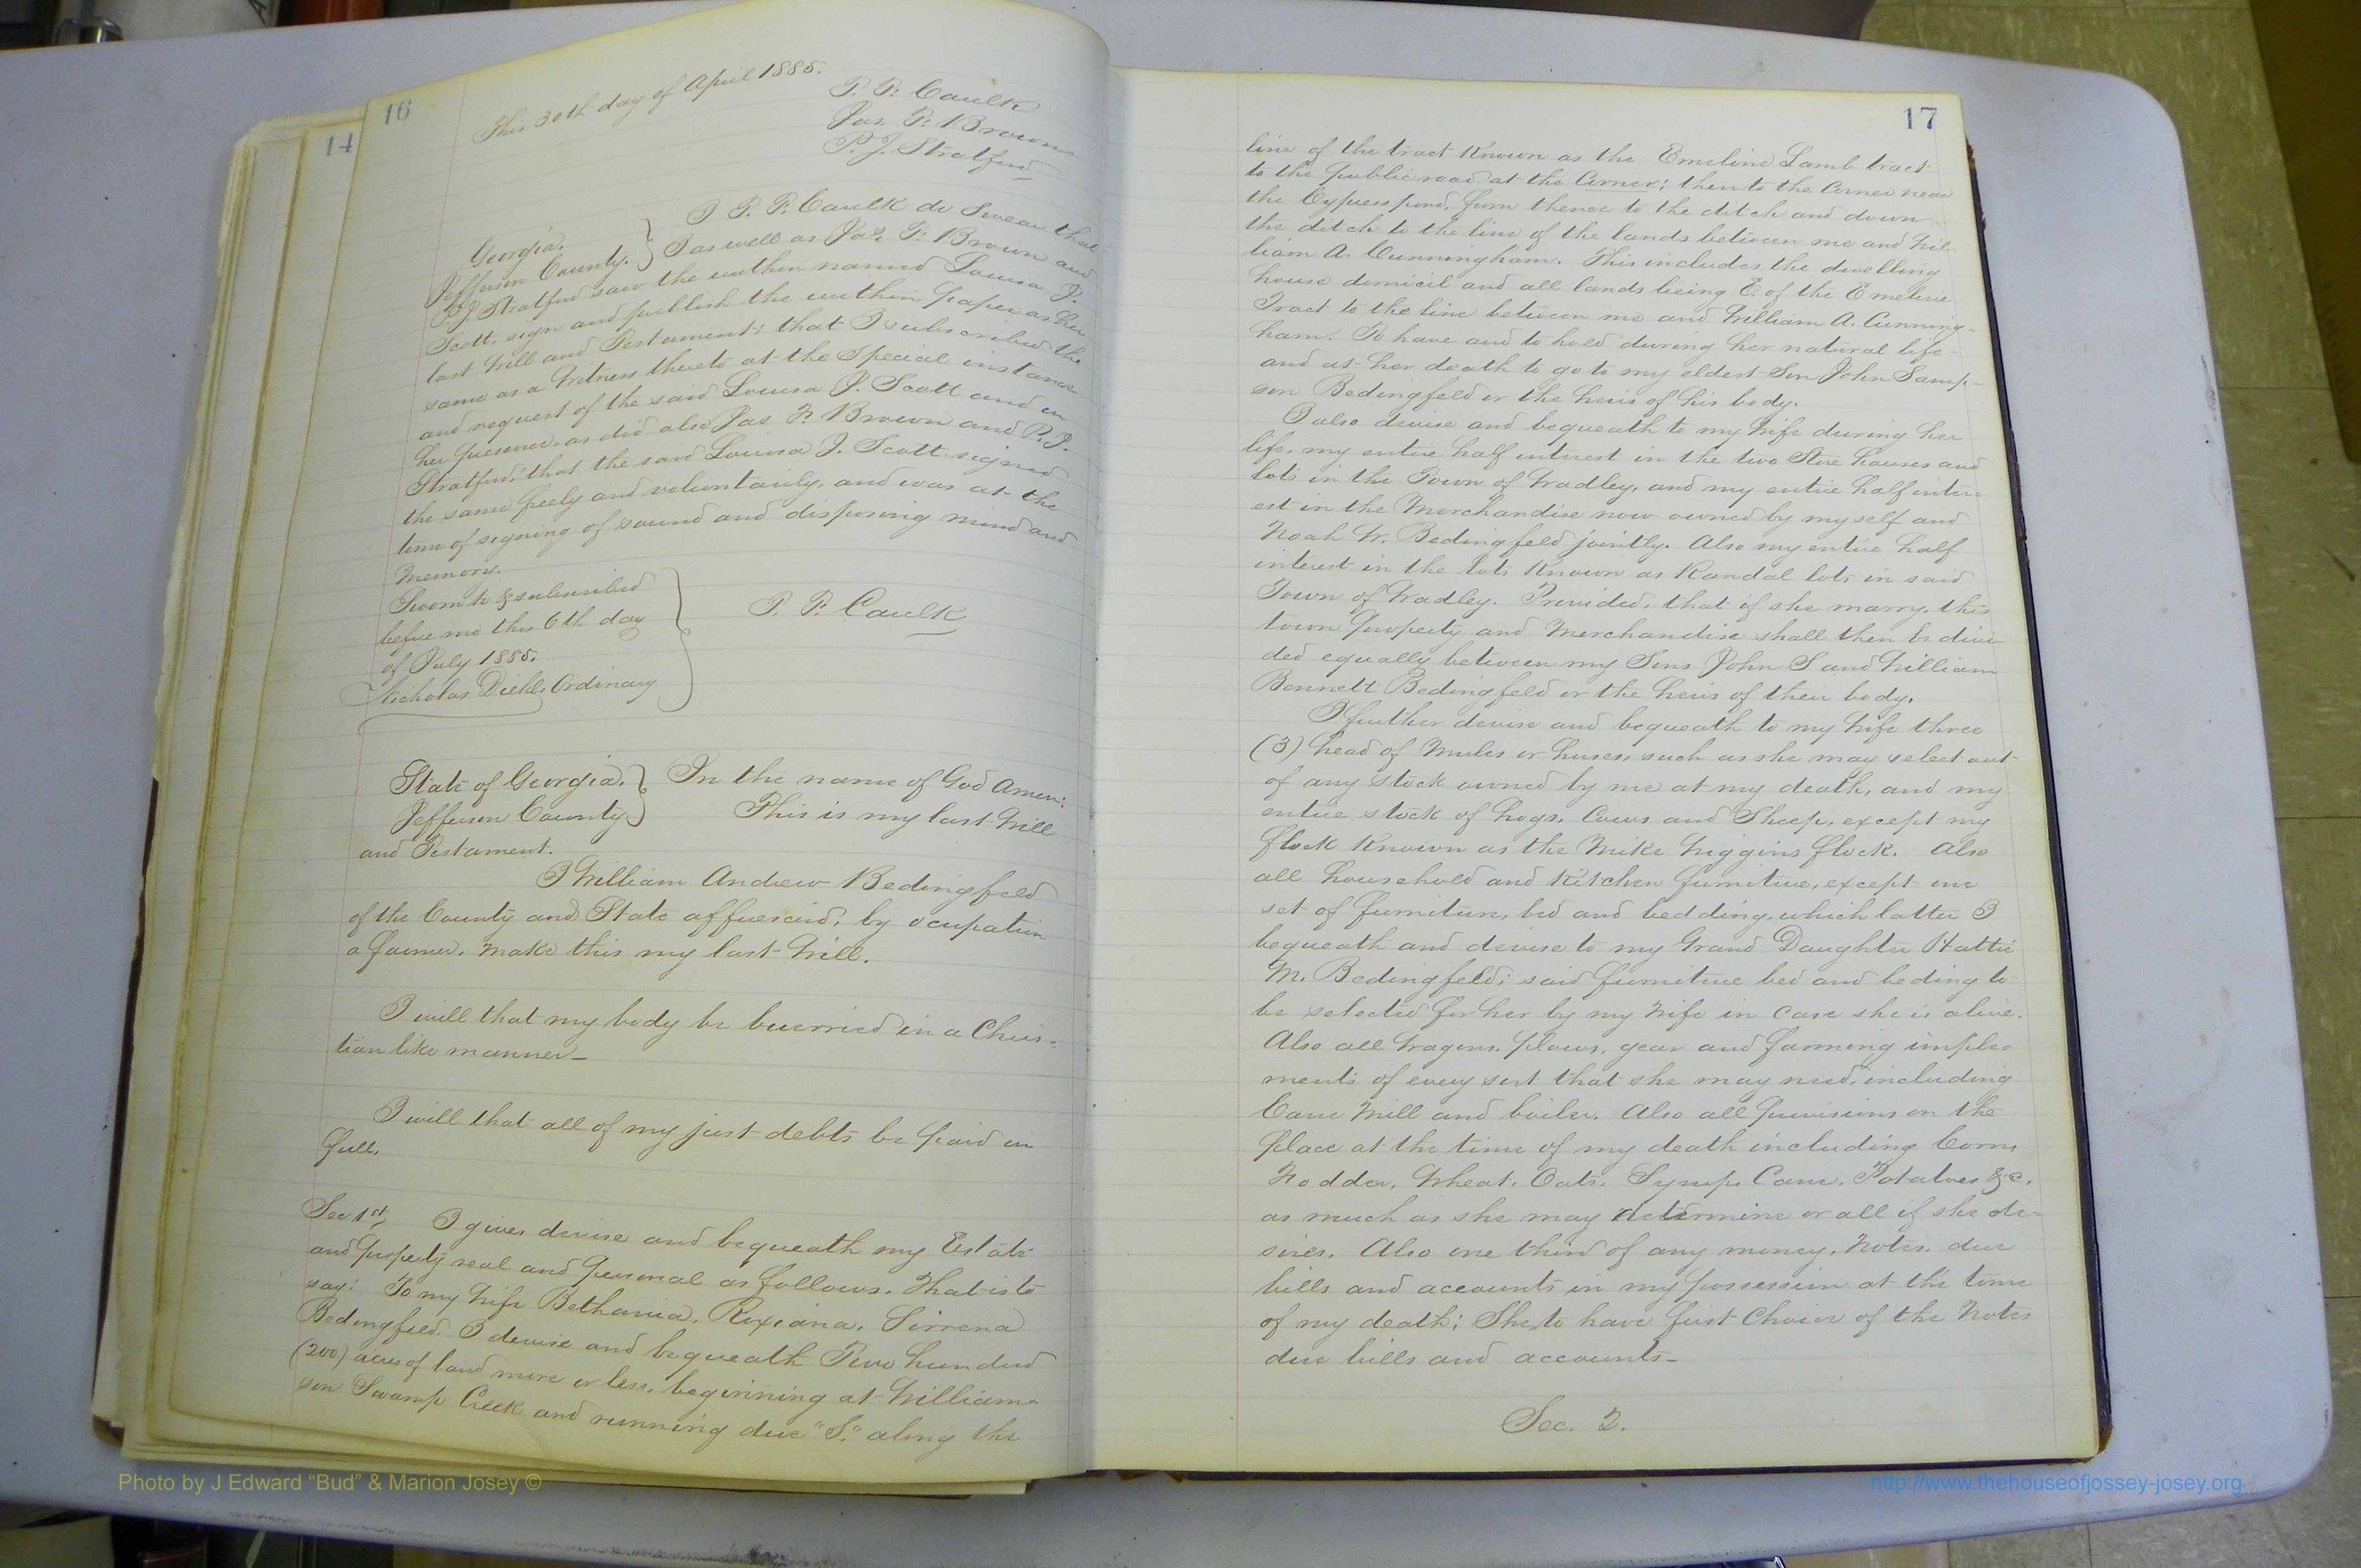 14
16
This 30th day of April 1885.
P. P. Caulk
Jas. F. Brown
P. J. Stratford
Georgia,
Jefferson County.
I P. P. Caulk do Swear that
I as well as Jas. F. Brown and
P. J. Stratford saw the within named Louisa J.
Scott, sign and publish the within paper as her
last Will and Testament; that I subscribed the
same as a Witness thereto at the special instance
and request of the said Louisa J. Scott and in
her presence, as did also Jas F. Brown and P. J.
Stratford; that the said Louisa J. Scott signed
the same freely and voluntarily, and was at the
time of signing of sound and disposing mind and
Memory.
Sworn to & subscribed
before me this 6th day
of July 1885.
Nicholas Diehl, Ordinary
P. P. Caulk
State of Georgia.
Jefferson County
In the name of God Amen:
This is my last Will
and Testament.
I William Andrew Bedingfeld
of the County and State afforesaid, by ocupation
a farmer, make this my last Will.
I will that my body be buerried in a Chris-
tian like manner_
I will that all of my just debts be paid in
full.
Sec 1st, I give, devise and bequeath my Estate
and property real and personal as follows. That is to
say: To my Wife Bethania, Roxiana, Sirrena
Bedingfeld. I devise and bequeath Two hundred
(200) acres of land more or less, beginning at William-
son Swamp Creek and running due "S." along the
17
line of the tract Known as the Emeline Lamb tract
to the public road at the Corner; then to the Corner near
the Cypress pond, from thence to the ditch and down
the ditch to the line of the lands between me and Wil-
liam A. Cunningham. This includes the dwelling
house domicil and all lands being E. of the Emeline
Tract to the line between me and William A. Cunning-
ham. To have and to hold during her natural life-
and at her death to go to my eldest Son John Samp-
son Bedingfeld or the heirs of his body.
I also devise and bequeath to my Wife during her
life, my entire half interest in the two Store houses and
lots in the Town of Wadley, and my entire half inter-
est in the Merchandise now owned by myself and
Noah W. Bedingfeld jointly. Also my entire half
interest in the lots Known as Randal lots in said
Town of Wadley. Provided, that if she marry, this
town property and Merchandise shall then be divi-
ded equally between my Sons John S and William
Bennett Bedingfeld or the heirs of their body.
I further devise and bequeath to my Wife three
(3) head of Mules or horses, such as she may select out
of any stock owned by me at my death, and my
entire stock of hogs, Cows and Sheep, except my
flock Known as the Mike Wiggins flock. Also
all household and Kitchen furniture, except one
set of furniture, bed and bedding, which latter I
bequeath and devise to my Grand Daughter Hattie
M. Bedingfeld; said furniture bed and beding to
be selected for her by my Wife in case she is alive.
Also all Wagons, plows, gear and farming imple-
ments of every sort that she may need, including
Cane Mill and boiler. Also all provisions on the
place at the time of my death including Corn,
Fodder, Wheat, Oats, Syrup, Cane, Potatoes &c.
as much as she may determine or all if she de-
sires. Also one third of any money, Notes, due
bills and accounts in my possession at the time
of my death; She to have first Choice of the Notes
due bills and accounts_
Sec. 2.
Photo by J Edward “Bud” & Marion Josey ©
http://www.thehouseofjossey-josey.org